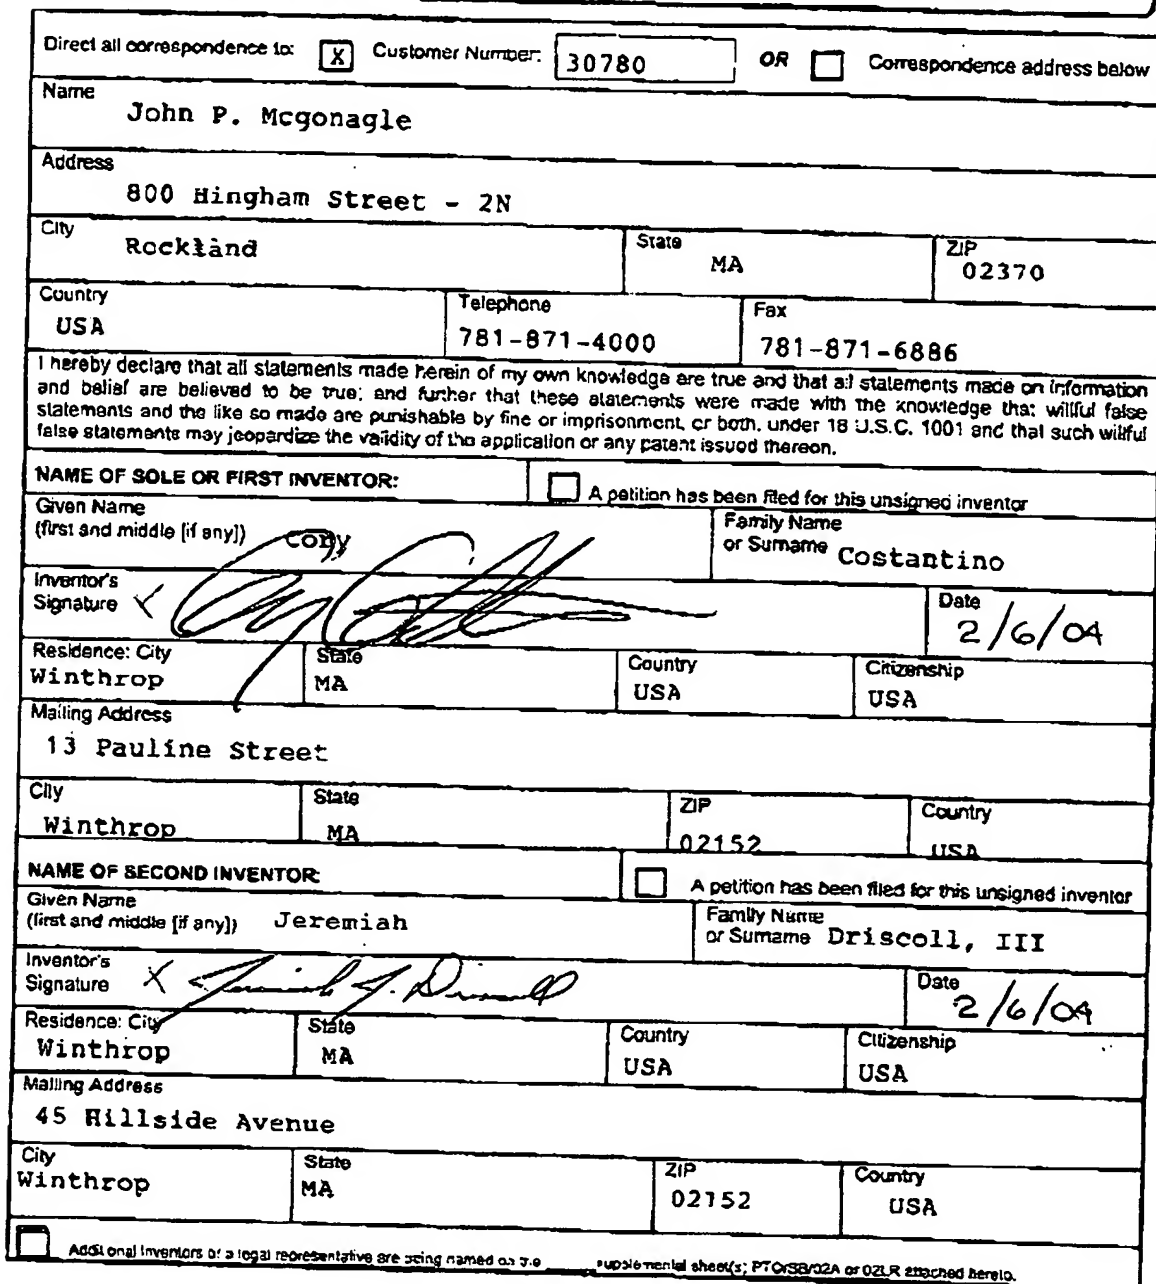 Direct all correspondence to: X Customer Number: 30780 OR Correspondence address below
Name
John P. Mcgonagle
Address
800 Hingham Street - 2N
City State ZIP
Rockland MA 02370
Country Telephone Fax
USA 781-871-4000 781-871-6886
I hereby declare that all statements made herein of my own knowledge are true and that all statements made on information
and belief are believed to be true; and further that these statements were made with the knowledge that willful false
statements and the like so made are punishable by fine or imprisonment, or both, under 18 U.S.C. 1001 and that such willful
false statements may jeopardize the validity of the application or any patent issued thereon.
NAME OF SOLE OR FIRST INVENTOR: A petition has been filed for this unsigned inventor
Given Name Family Name
(first and middle [if any]) Cory or Surname Costantino
Inventor's Date
Signature X 2/6/04
Residence: City State Country Citizenship
Winthrop MA USA USA
Mailing Address
13 Pauline Street
City State ZIP Country
Winthrop MA 02152 USA
NAME OF SECOND INVENTOR: A petition has been filed for this unsigned inventor
Given Name Family Name
(first and middle [if any]) Jeremiah or Surname Driscoll, III
Inventor's Date
Signature X Jeremiah J. Driscoll 2/6/04
Residence: City State Country Citizenship
Winthrop MA USA USA
Mailing Address
45 Hillside Avenue
City State ZIP Country
Winthrop MA 02152 USA
Additional inventors or a legal representative are being named on the supplemental sheet(s) PTO/SB/02A or 02LR attached hereto.